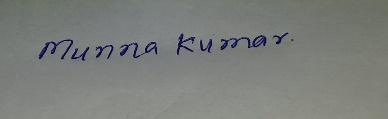 Munna Kumar.